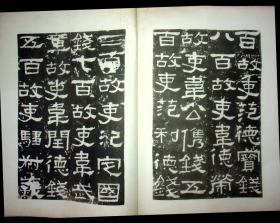 百故吏范德寶錢
八百故吏韋德榮
故吏韋公儁錢五
百故吏范利德錢
三百故吏定國
錢七百故吏韋武
章故吏韋閏德錢
五百故吏騶叔義